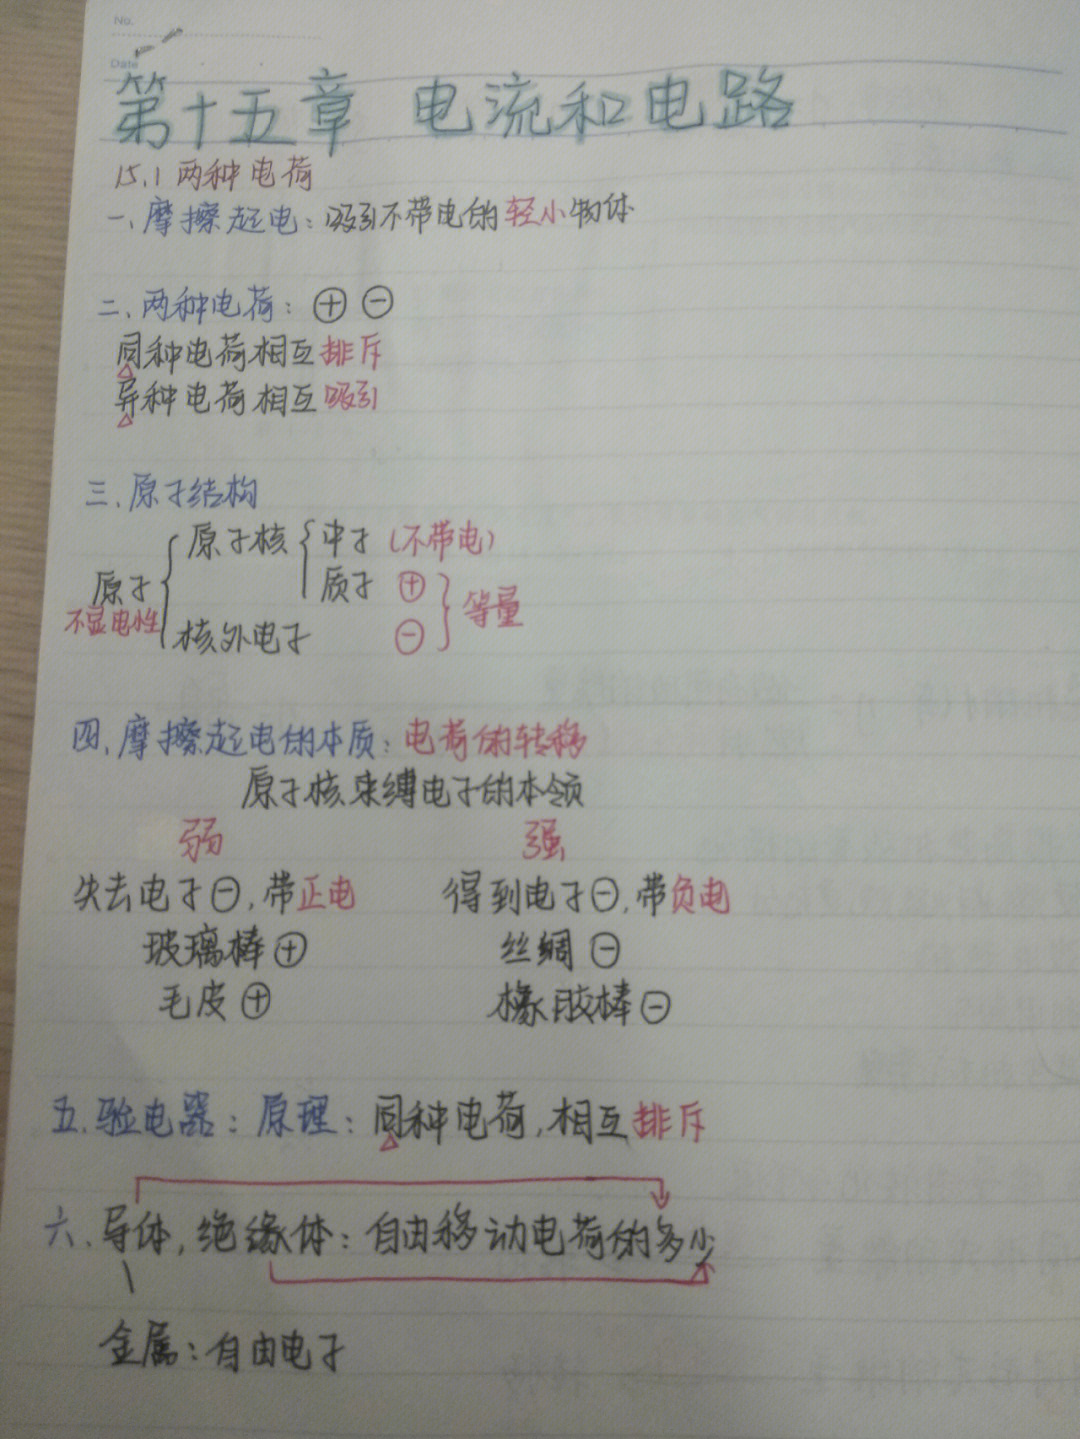 No.
Date
第十五章 电流和电路
15.1 两种电荷
一、摩擦起电：吸引不带电的轻小物体
二、两种电荷：⊕ ⊖
同种电荷相互排斥
异种电荷相互吸引
三、原子结构
原子核 { 中子 (不带电)
原子 { 质子 ⊕ } 等量
不显电性
核外电子 ⊖
四、摩擦起电的本质：电荷的转移
原子核束缚电子的本领
弱 强
失去电子⊖，带正电 得到电子⊖，带负电
玻璃棒⊕ 丝绸⊖
毛皮⊕ 橡胶棒⊖
五、验电器：原理：同种电荷，相互排斥
六、导体，绝缘体：自由移动电荷的多少
金属：自由电子